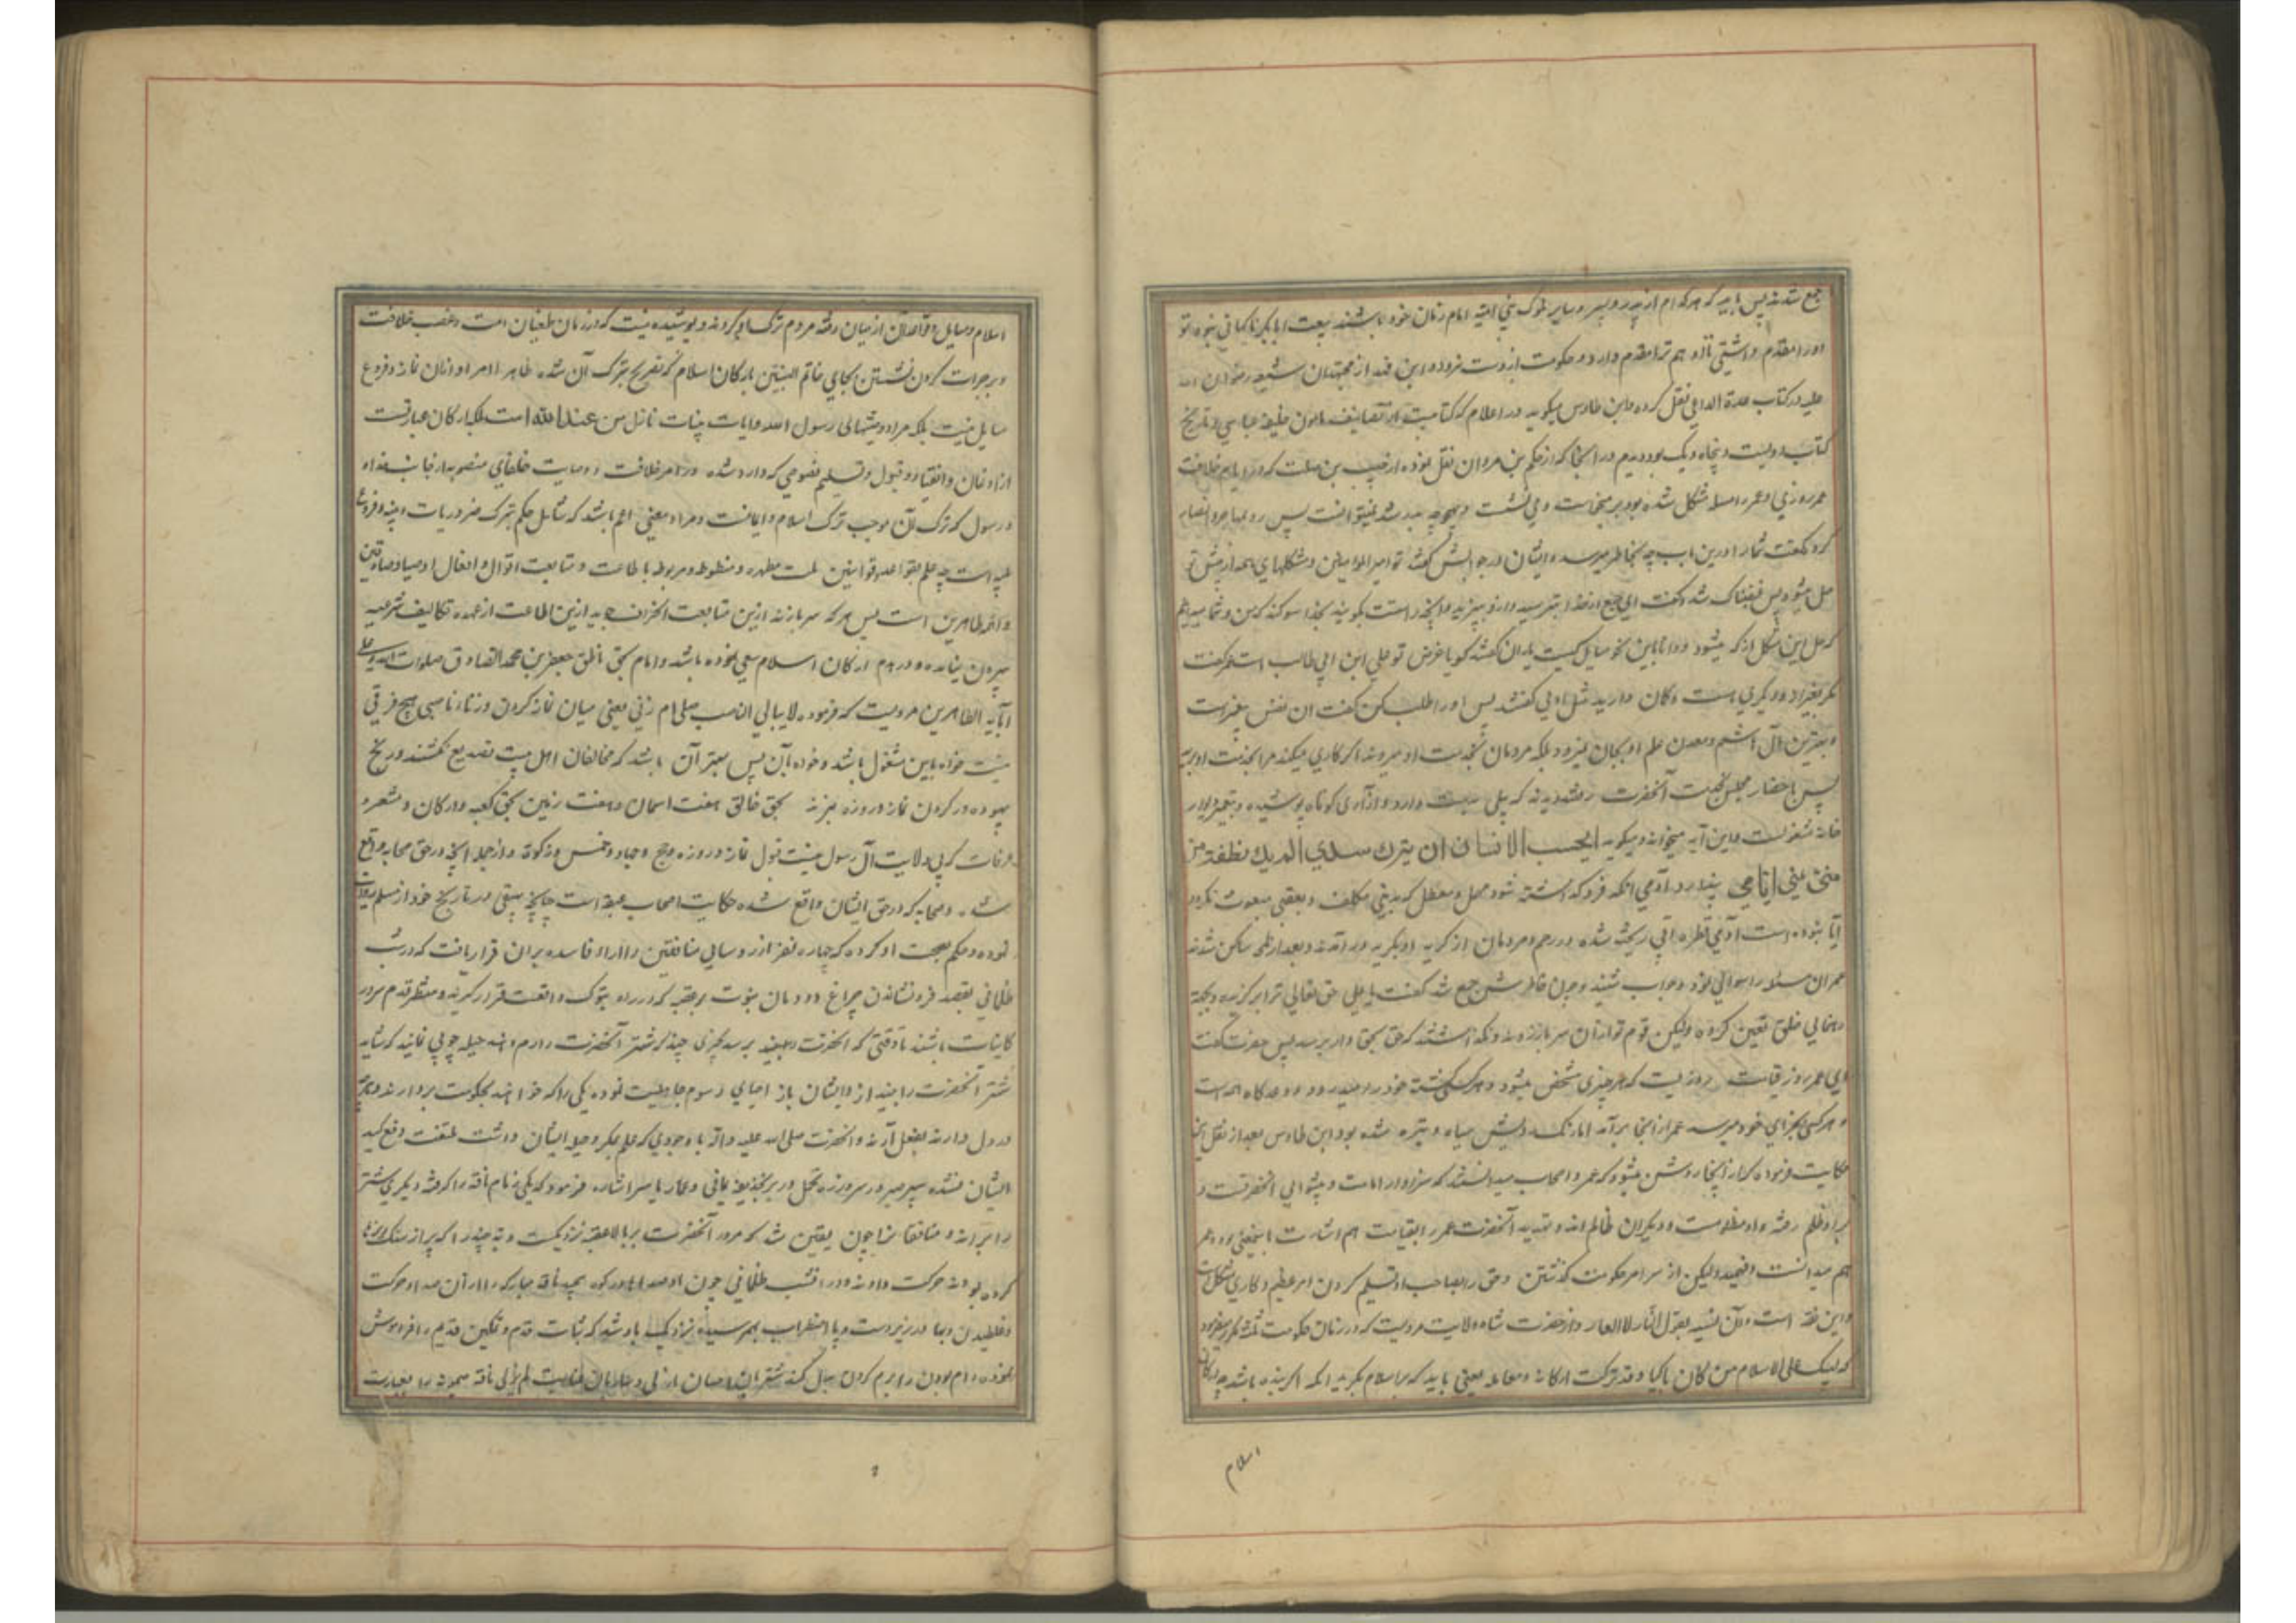 جمع شدند پس باید که هر کدام از پدر و پسر و سایر ملوک بنی امیه امام زمان خود باشند بیعت ابابکر ناگهانی نبود تو
او را مقدم داشتی تا او هم ترا مقدم دارد و حکومت از دست نرود و ابن فهد از مجتهدان شیعه رضوان الله
علیه در کتاب عدة الداعی نقل کرده و ابن طاوس میگوید در اعلام که کتابیست از تصانیف مامون خلیفه عباسی و تاریخ
کتاب دویست و پنجاه و یک بود دیدم در آنجا که از حکم بن مروان نقل نموده از جبیب بن صلت که در ایام خلافت
عمر روزی او عمر را مسله مشکل شده بود بر میخاست و می نشست و بهیچ وجه بدر شد نمیتوانست پس رو بمهاجر و انصار
کرد و گفت شما را درین باب چه بخاطر میرسد ایشان در جوابش گفتند تو امیر المؤمنین و مشکلهای همه از پیش تو
حل میشود پس غضبناک شد و گفت ای جمع از خدا بترسید و از و بپرهیزید و آنچه راستست بگویید بخدا سوگند که من و شما میدانیم
که حل این مشکل از که میشود و دانا باین نحو مسایل کیست یاران گفتند گویا غرض تو علی ابن ابی طالب است عمر گفت
مگر بغیر او دیگری هست و گمان دارید مثل اویی گفتند پس او را طلب کن گفت ان نفس پیغمبرست
و بهترین آل هاشم و معدن علم او بجایی نمیرود بلکه مردمان بخدمت او میروند اگر کاری میکنید مرا بخدمت او برید
پس با حضار مجلس بخدمت آنحضرت رفتند دیدند که بیل بدست دارد و ازاری کوتاه پوشیده و بتعمیر دیوار
خانه مشغولست و این آیه میخواند و میگوید ایحسب الانسان ان یترک سدی الم یک نطفة من
منی یمنی ایا می پندارد آدمی انکه فرو گذاشته شود مهمل و معطل که بدینی مکلف و بعقبی مبعوث نگردد
آیا نبوده است آدمی قطره آبی ریخته شده در رحم و مردمان از گریه او بگریه در آمدند و بعد از انکه ساکن شدند
عمر ان مسئله را سوالی نمود و جواب شنید و چون خاطرش جمع شد گفت یا علی حق تعالی ترا برگزیده و بجهة
رهنمایی خلق تعیین کرده ولیکن قوم تو از آن سر باز زده اند و نگذاشتند که حق بحق دار برسد پس حضرت گفت
ای عمر روز قیامت روزیست که هر چیزی مشخص میشود و هر کسی کشته خود را میدرود و وعده گاه همه است
و هر کسی بجزای خود میرسد عمر از آنجا برآمد اما رنگ رویش سیاه و تیره شده بود ابن طاوس بعد از نقل این
حکایت فرموده که از اینجا روشن میشود که عمر و اصحاب میدانستند که سزاوار امامت و پیشوایی انحضرتست و
بر او ظلم رفته و او مظلومست و دیگران ظالم اند و تهدید آنحضرت عمر را بقیامت هم اشارت باینمعنی بود و عمر
هم میدانست و فهمید ولیکن از سر امر حکومت گذشتن و حق را بصاحب او تسلیم کردن امر عظیم و کاری مشکل است
و این نقد است و آن نسیه بقول النار لا العار و از حضرت شاه ولایت مرویست که در زمان حکومت ثلثه مکرر میفرمود
که لیبک علی الاسلام من کان باکیا و قد ترکت ارکانه و معالمه یعنی باید که بر اسلام بگرید انکه گرینده باشد چه ارکان
اسلام
اسلام و مسایل و قواعد آن از میان رفته مردم ترک او کردند و پوشیده نیست که در زمان طغیان امت و غصب خلافت
و بر جرات کردن نشستن بجای خاتم النبیین بارکان اسلام که تصریح بترک آن شده ظاهر الامر او ارکان نماز و فروع
مسایل نیست بلکه مراد و منتهای رسول الله و ایات بینات نازل من عند الله است بلکه ارکان عبارتست
از اذعان و انقیاد و قبول و تسلیم نصوصی که وارد شده در امر خلافت و وصایت خلفای منصوبه از جانب خدا
و رسول که ترک آن موجب ترک اسلام و ایمانست و مراد معنی اعم باشد که شامل حکم بترک ضروریات دینیه و فروع
علیه است چه علم بقواعد و قوانین ملت مطهره و منظوط و مربوط باطاعت و متابعت اقوال و افعال اوصیاء صادقین
و ائمه طاهرین است پس هر که سر باز زند ازین متابعت و انحراف جوید ازین اطاعت از عهده تکالیف شرعیه
بیرون نیامده و در هدم ارکان اسلام سعی نموده باشد و امام بحق ناطق جعفر بن محمد الصادق صلوات الله و سلامه علیه
و آبایه الطاهرین مرویست که فرموده لا یبالی الناصب صلی ام زنی یعنی میان نماز کردن و زناء ناصبی هیچ فرقی
نیست خواه باین مشغول باشد و خواه بآن پس بهتر آن باشد که مخالفان اهل بیت تصدیع نکشند و رنج
بیهوده در کردن نماز و روزه نبرند بحق خالق هفت اسمان و هفت زمین بحق کعبه و ارکان و مشعر و
عرفات که بی ولایت آل رسول نیست قبول نماز و روزه و حج و جهاد و خمس و زکوة و از جمله انچه در حق صحابه واقع
شده و صحابه که در حق ایشان واقع شده حکایت اصحاب عقبه است چنانچه بیهقی در تاریخ خود از مسلم روایت
نموده و حکم بصحت او کرده که چهارده نفر از روسای منافقین را اراء فاسده بران قرار یافت که در شب
ظلمانی بقصد فرو نشاندن چراغ دودمان نبوت بر عقبه که در راه تبوک واقعست قرار گیرند و منتظر قدم سرور
کاینات باشند تا وقتی که انحضرت بعقبه برسد بحرکتی چند که شتر آنحضرت را رم دهند حیله جویی نمایند که شاید
شتر آنحضرت را بیندازد و ایشان باز احیای رسوم جاهلیت نموده یکی را که خواهند بحکومت بردارند و آنچه
در دل دارند بفعل آرند و انحضرت صلی الله علیه و آله با وجودی که علم بمکر و حیله ایشان داشت ملتفت دفع کید
ایشان نشده سپر صبر در سر و زره تحمل در بر بحذیفه یمانی و عمار یاسر اشاره فرمود که یکی زمام ناقه را گرفته و دیگری شتر
را براند و منافقان را چون یقین شد که مرور آنحضرت بر بالا عقبه نزدیکست دبه چند را که پر از سنگ ریزها
کرده بودند حرکت دادند و در انشب ظلمانی چون او صداها در کوه پیچید ناقه مبارکه را از آن صدا و حرکت
و غلطیدن دبها در زیر دست و پا اضطراب بهم رسیده نزدیک باو شد که ثبات قدم و تمکین قدیم را فراموش
نموده رام بودن را برم کردن بدل کند شتربان ناقه را بعبارت